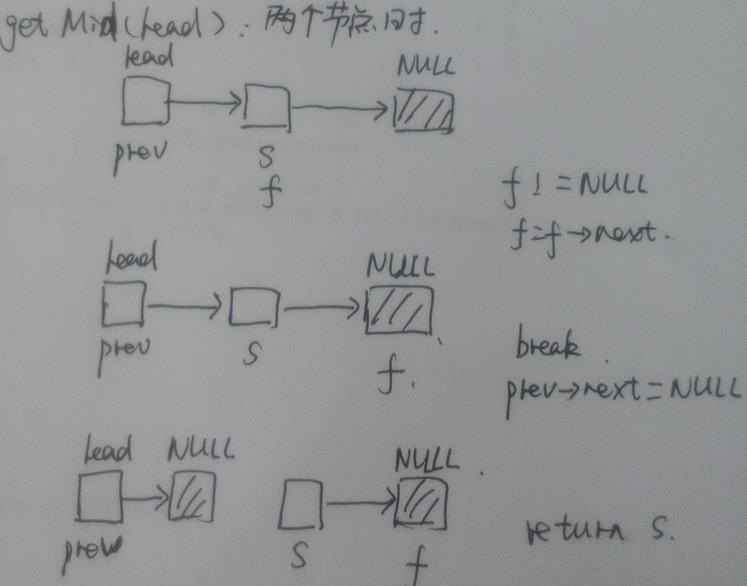 get Mid(head): 两个节点时.
head
NULL
prev
s
f
f != NULL
f=f→next.
head
NULL
prev
s
f.
break.
prev→next=NULL
head NULL
NULL.
prev
s
f
return s.